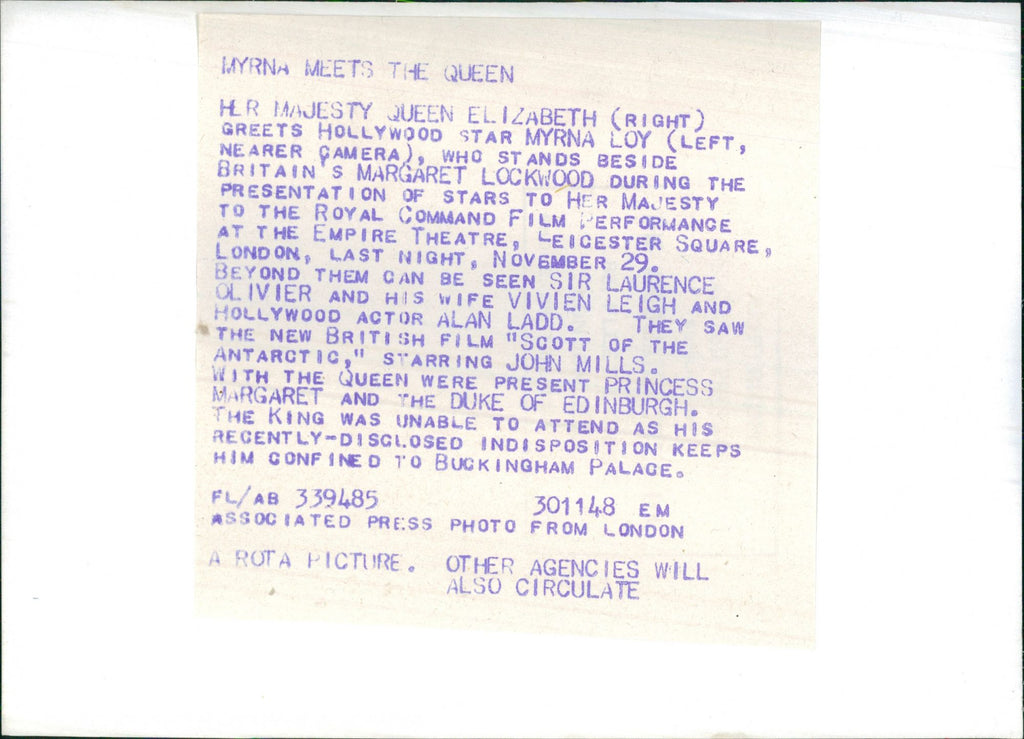 MYRNA MEETS THE QUEEN
HER MAJESTY QUEEN ELIZABETH (RIGHT)
GREETS HOLLYWOOD STAR MYRNA LOY (LEFT,
NEARER CAMERA), WHO STANDS BESIDE
BRITAIN'S MARGARET LOCKWOOD DURING THE
PRESENTATION OF STARS TO HER MAJESTY
TO THE ROYAL COMMAND FILM PERFORMANCE
AT THE EMPIRE THEATRE, LEICESTER SQUARE,
LONDON, LAST NIGHT, NOVEMBER 29.
BEYOND THEM CAN BE SEEN SIR LAURENCE
OLIVIER AND HIS WIFE VIVIEN LEIGH AND
HOLLYWOOD ACTOR ALAN LADD. THEY SAW
THE NEW BRITISH FILM "SCOTT OF THE
ANTARCTIC," STARRING JOHN MILLS.
WITH THE QUEEN WERE PRESENT PRINCESS
MARGARET AND THE DUKE OF EDINBURGH.
THE KING WAS UNABLE TO ATTEND AS HIS
RECENTLY-DISCLOSED INDISPOSITION KEEPS
HIM CONFINED TO BUCKINGHAM PALACE.
FL/AB 339485 301148 EM
ASSOCIATED PRESS PHOTO FROM LONDON
A ROTA PICTURE. OTHER AGENCIES WILL
ALSO CIRCULATE